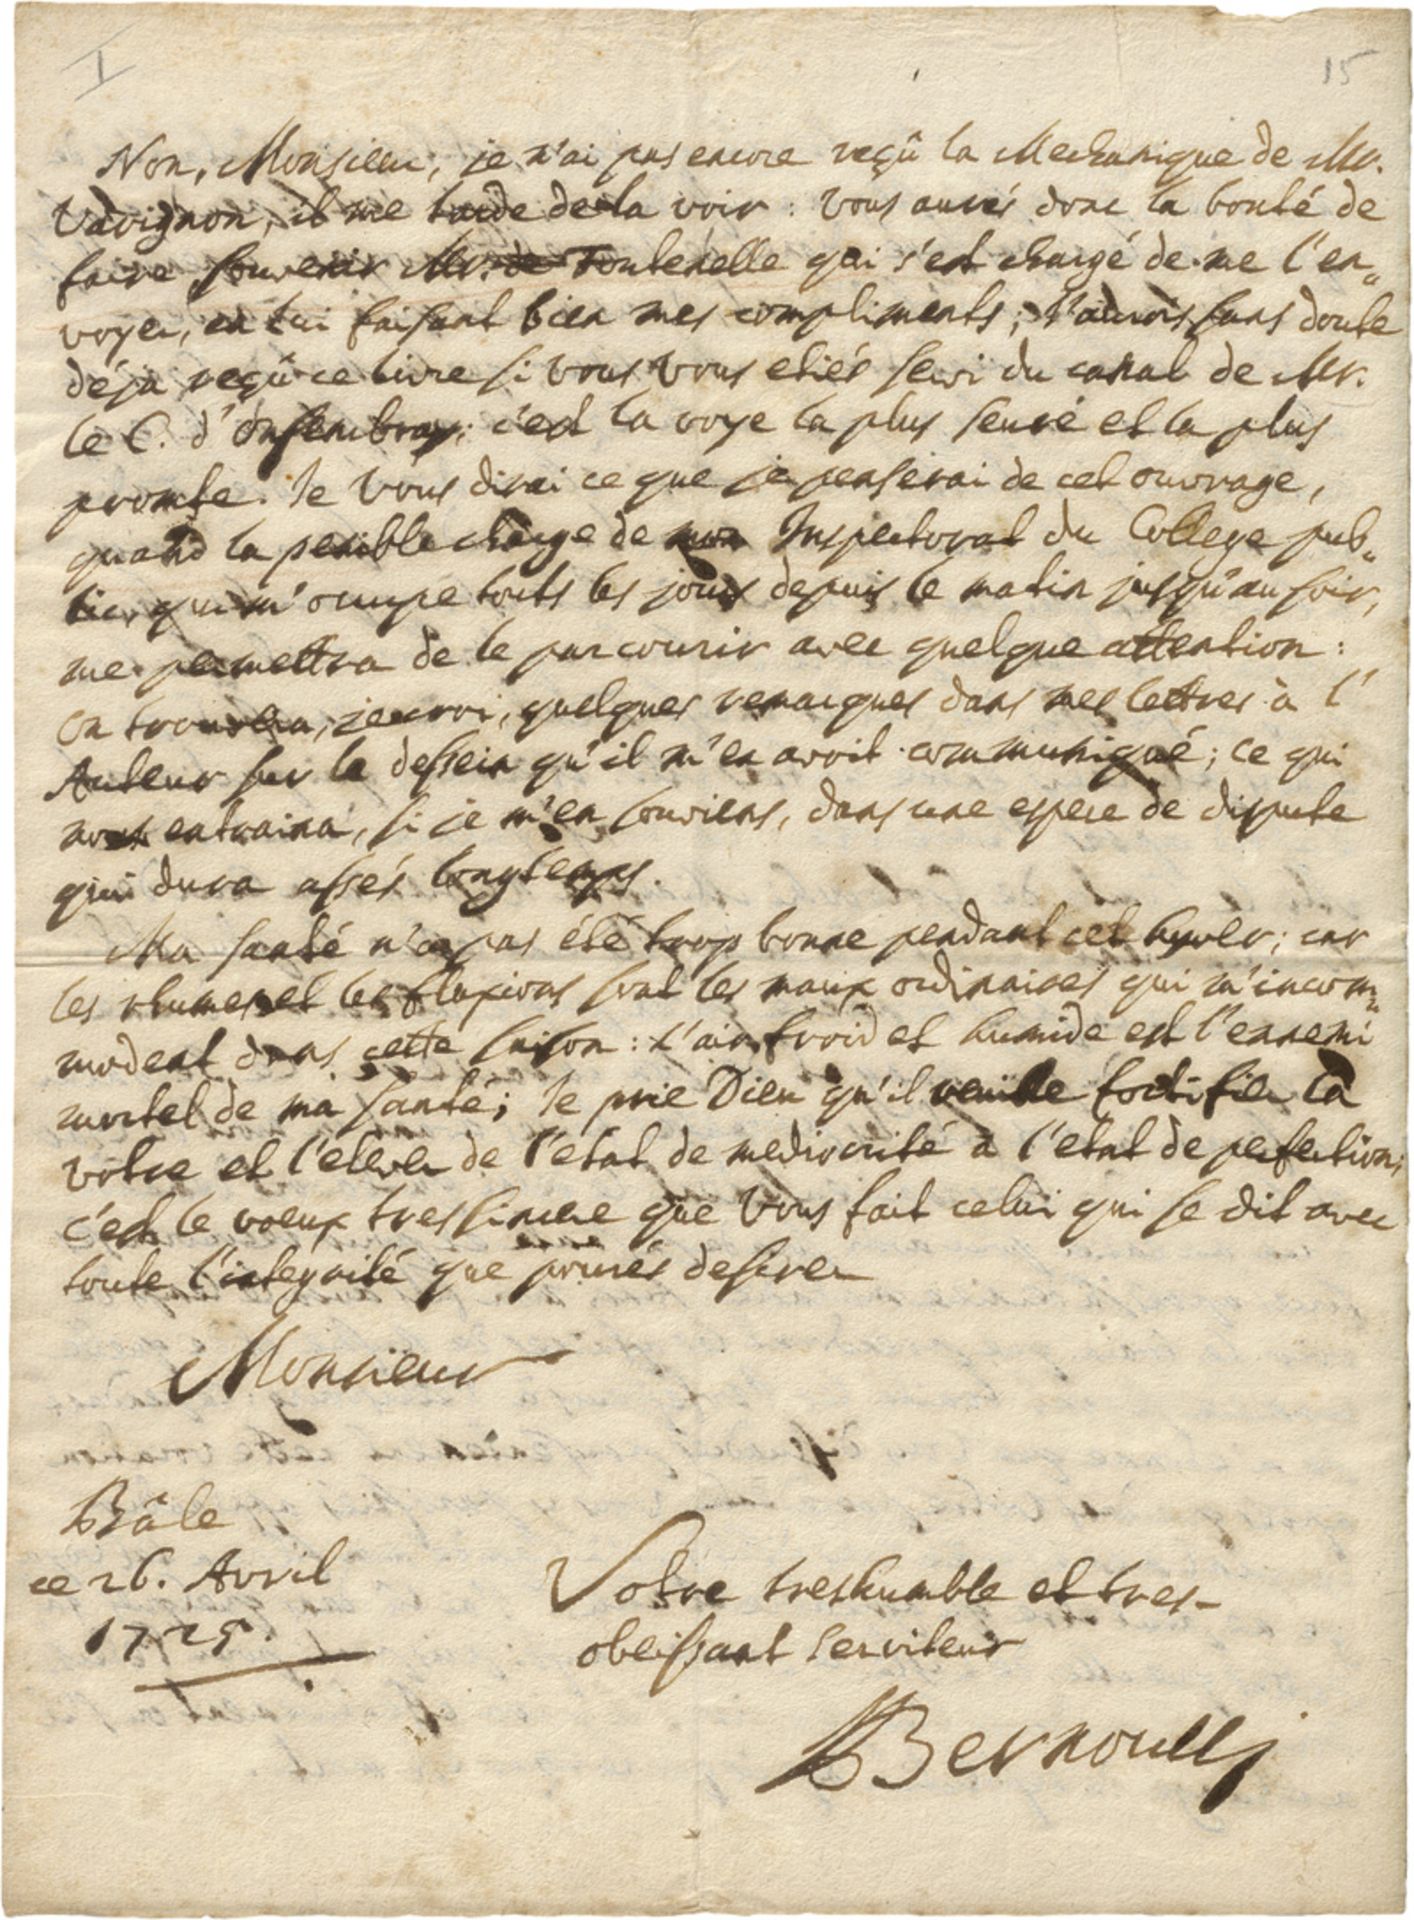 I
15
Non, Monsieur, je n'ai pas encore reçû la Mechanique de Mr.
Varignon, il me tarde de la voir : vous aurés donc la bonté de
faire souvenir Mr. de Fontenelle qui s'est chargé de me l'en„
voyer, en lui faisant bien mes compliments ; j'aurois sans doute
déja reçû ce livre si vous vous etiés servi du canal de Mr.
le C. d'Onsembray; c'est la voye la plus seure et la plus
promte. Je vous dirai ce que je penserai de cet ouvrage,
quand la penible charge de mon Inspectorat du College pub„
lic, qui m'occupe touts les jours depuis le matin jusqu'au soir,
me permettra de le parcourir avec quelque attention :
On trouvera, je croi, quelques remarques dans mes lettres à l'
Auteur sur le dessein qu'il m'en avoit communiqué ; ce qui
nous entraina, si je m'en souviens, dans une espece de dispute
qui dura assés longtemps.
Ma santé n'a pas été trop bonne pendant cet hyver ; car
les rhumes et les fluxions sont les maux ordinaires qui m'incom„
modent dans cette saison : l'air froid et humide est l'ennemi
mortel de ma santé ; Je prie Dieu qu'il veuille fortifier la
votre et l'elever de l'etat de mediocrité à l'etat de perfection ;
c'est le voeux tres sincere que vous fait celui qui se dit avec
toute l'integrité que pouvés desirer
Monsieur
Bâle
ce 26. Avril
1725.
Votre treshumble et tres-
obeissant serviteur
JBernoulli